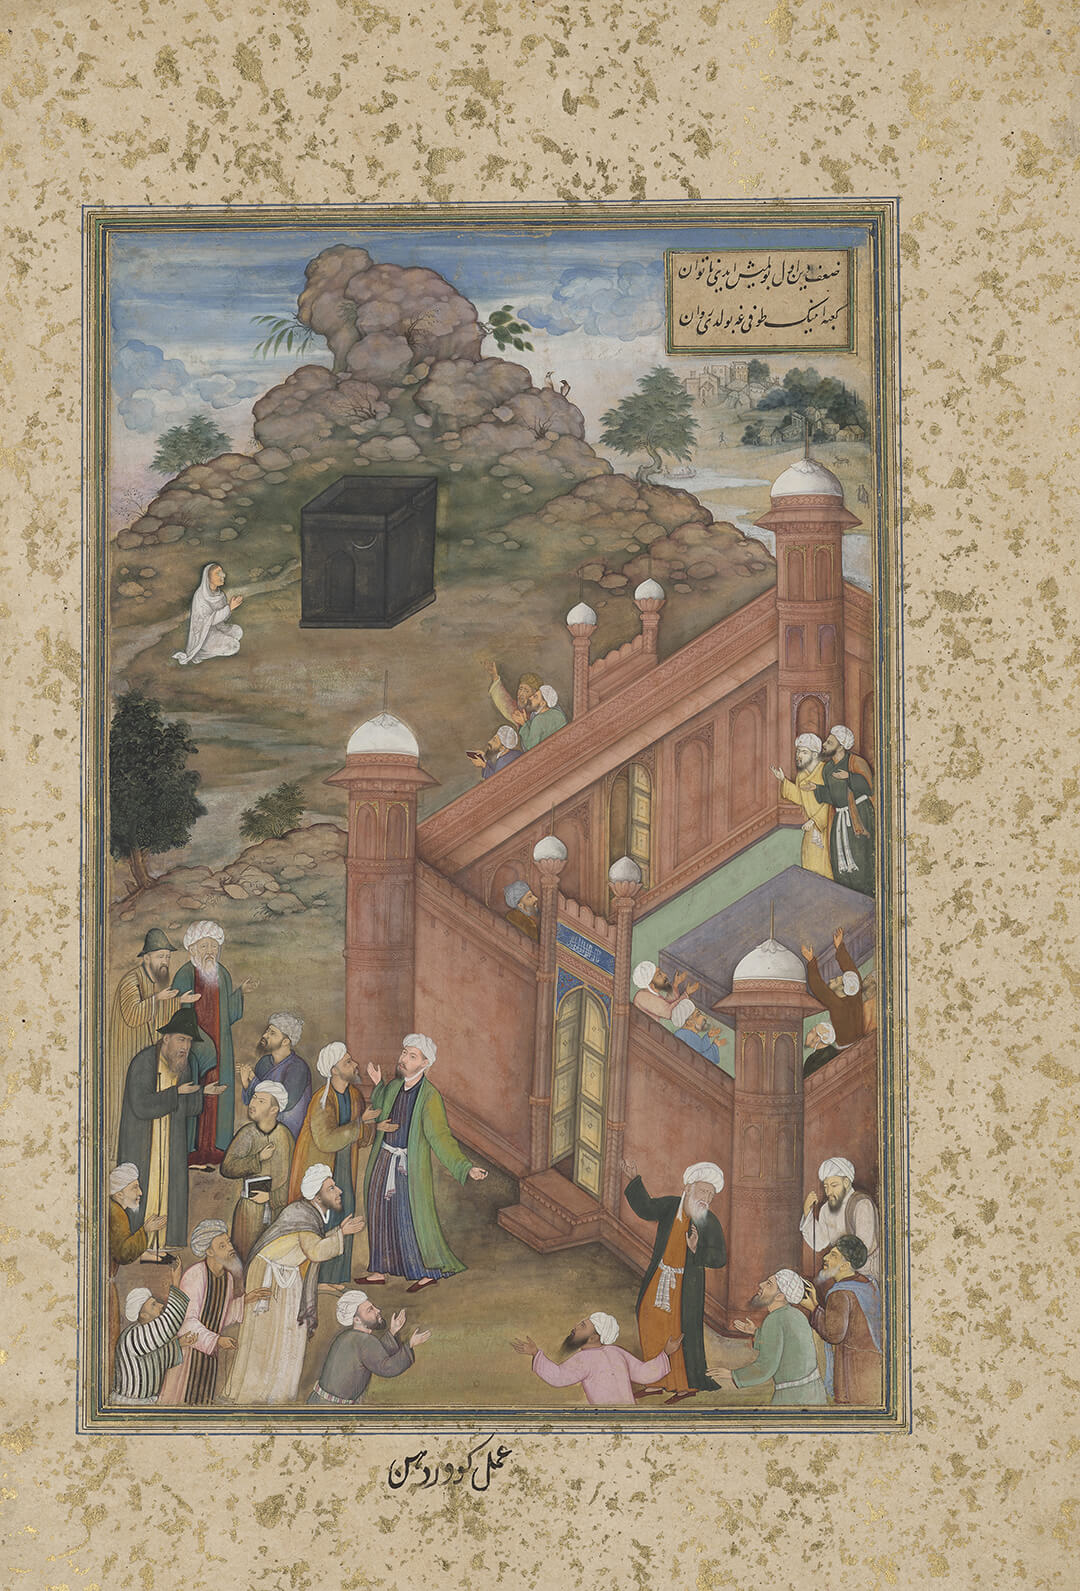 ضعفدین اول بولمیش ایدی ناتوان
کعبه انینک طوفی غه بولدی روان
عمل کووردهن